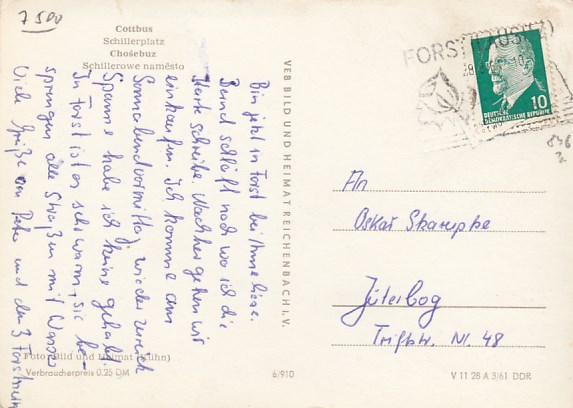 7500
Cottbus
Schillerplatz
Chośebuz
Schillerowe naměsto
Bin jetzt in Forst bei Anneliese.
Bernd schläft noch wo ich die
Karte schreibe. Nachher gehen wir
einkaufen. Ich komme am
Sonnabendvormittag wieder zurück
Spanne habe ich keine gehabt
In Forst ist es sehr warm, sie be-
sprengen alle Straßen mit Wasser
Viele Grüße von Peter und den 3 Forstnern
Foto: Bild und Heimat (Kühn)
Verbraucherpreis 0.25 DM
6/910
VEB BILD UND HEIMAT REICHENBACH I. V.
FORST (LAUSITZ)
10
DEUTSCHE
DEMOKRATISCHE REPUBLIK
An
Oskar Skampke
Jüterbog
Triftstr. Nr. 48
V 11 28 A 3/61 DDR